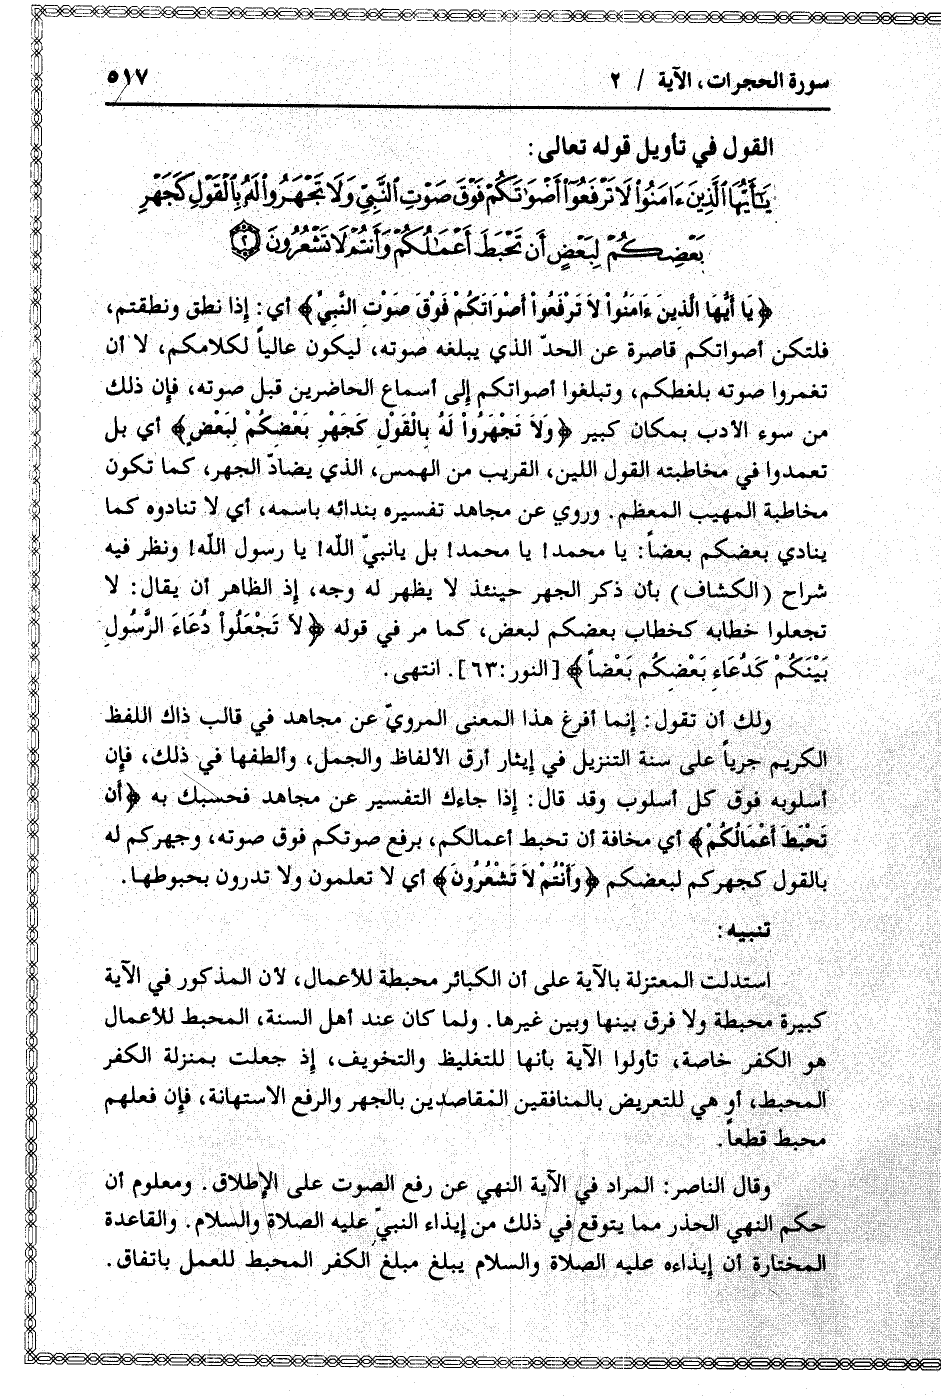 سورة الحجرات، الآية / ٢ ٥١٧
القول في تأويل قوله تعالى:
يَـٰٓأَيُّهَا ٱلَّذِينَ ءَامَنُوا۟ لَا تَرْفَعُوٓا۟ أَصْوَٰتَكُمْ فَوْقَ صَوْتِ ٱلنَّبِىِّ وَلَا تَجْهَرُوا۟ لَهُۥ بِٱلْقَوْلِ كَجَهْرِ
بَعْضِكُمْ لِبَعْضٍ أَن تَحْبَطَ أَعْمَـٰلُكُمْ وَأَنتُمْ لَا تَشْعُرُونَ ﴿٢﴾
﴿يَا أَيُّهَا الَّذِينَ ءَامَنُواْ لاَ تَرْفَعُواْ أَصْوَاتَكُمْ فَوْقَ صَوْتِ النَّبِيِّ﴾ أي: إذا نطق ونطقتم،
فلتكن أصواتكم قاصرة عن الحدّ الذي يبلغه صوته، ليكون عالياً لكلامكم، لا أن
تغمروا صوته بلغطكم، وتبلغوا أصواتكم إلى أسماع الحاضرين قبل صوته، فإن ذلك
من سوء الأدب بمكان كبير ﴿وَلاَ تَجْهَرُواْ لَهُ بِالْقَوْلِ كَجَهْرِ بَعْضِكُمْ لِبَعْضٍ﴾ أي بل
تعمدوا في مخاطبته القول اللين، القريب من الهمس، الذي يضادّ الجهر، كما تكون
مخاطبة المهيب المعظم. وروي عن مجاهد تفسيره بندائه باسمه، أي لا تنادوه كما
ينادي بعضكم بعضاً: يا محمد! يا محمد! بل يانبيّ الله! يا رسول الله! ونظر فيه
شراح (الكشاف) بأن ذكر الجهر حينئذ لا يظهر له وجه، إذ الظاهر أن يقال: لا
تجعلوا خطابه كخطاب بعضكم لبعض، كما مر في قوله ﴿لاَ تَجْعَلُواْ دُعَاءَ الرَّسُولِ
بَيْنَكُمْ كَدُعَاءِ بَعْضِكُم بَعْضاً﴾ [النور:٦٣]. انتهى.
ولك أن تقول: إنما أفرغ هذا المعنى المرويّ عن مجاهد في قالب ذاك اللفظ
الكريم جرياً على سنة التنزيل في إيثار أرق الألفاظ والجمل، وألطفها في ذلك، فإن
أسلوبه فوق كل أسلوب وقد قال: إذا جاءك التفسير عن مجاهد فحسبك به ﴿أَن
تَحْبَطَ أَعْمَالُكُمْ﴾ أي مخافة أن تحبط أعمالكم، برفع صوتكم فوق صوته، وجهركم له
بالقول كجهركم لبعضكم ﴿وَأَنْتُمْ لاَ تَشْعُرُونَ﴾ أي لا تعلمون ولا تدرون بحبوطها.
تنبيه:
استدلت المعتزلة بالآية على أن الكبائر محبطة للأعمال، لأن المذكور في الآية
كبيرة محبطة ولا فرق بينها وبين غيرها. ولما كان عند أهل السنة، المحبط للأعمال
هو الكفر خاصة، تأولوا الآية بأنها للتغليظ والتخويف، إذ جعلت بمنزلة الكفر
المحبط، أو هي للتعريض بالمنافقين المقاصدين بالجهر والرفع الاستهانة، فإن فعلهم
محبط قطعاً.
وقال الناصر: المراد في الآية النهي عن رفع الصوت على الإطلاق. ومعلوم أن
حكم النهي الحذر مما يتوقع في ذلك من إيذاء النبيّ عليه الصلاة والسلام. والقاعدة
المختارة أن إيذاءه عليه الصلاة والسلام يبلغ مبلغ الكفر المحبط للعمل باتفاق.